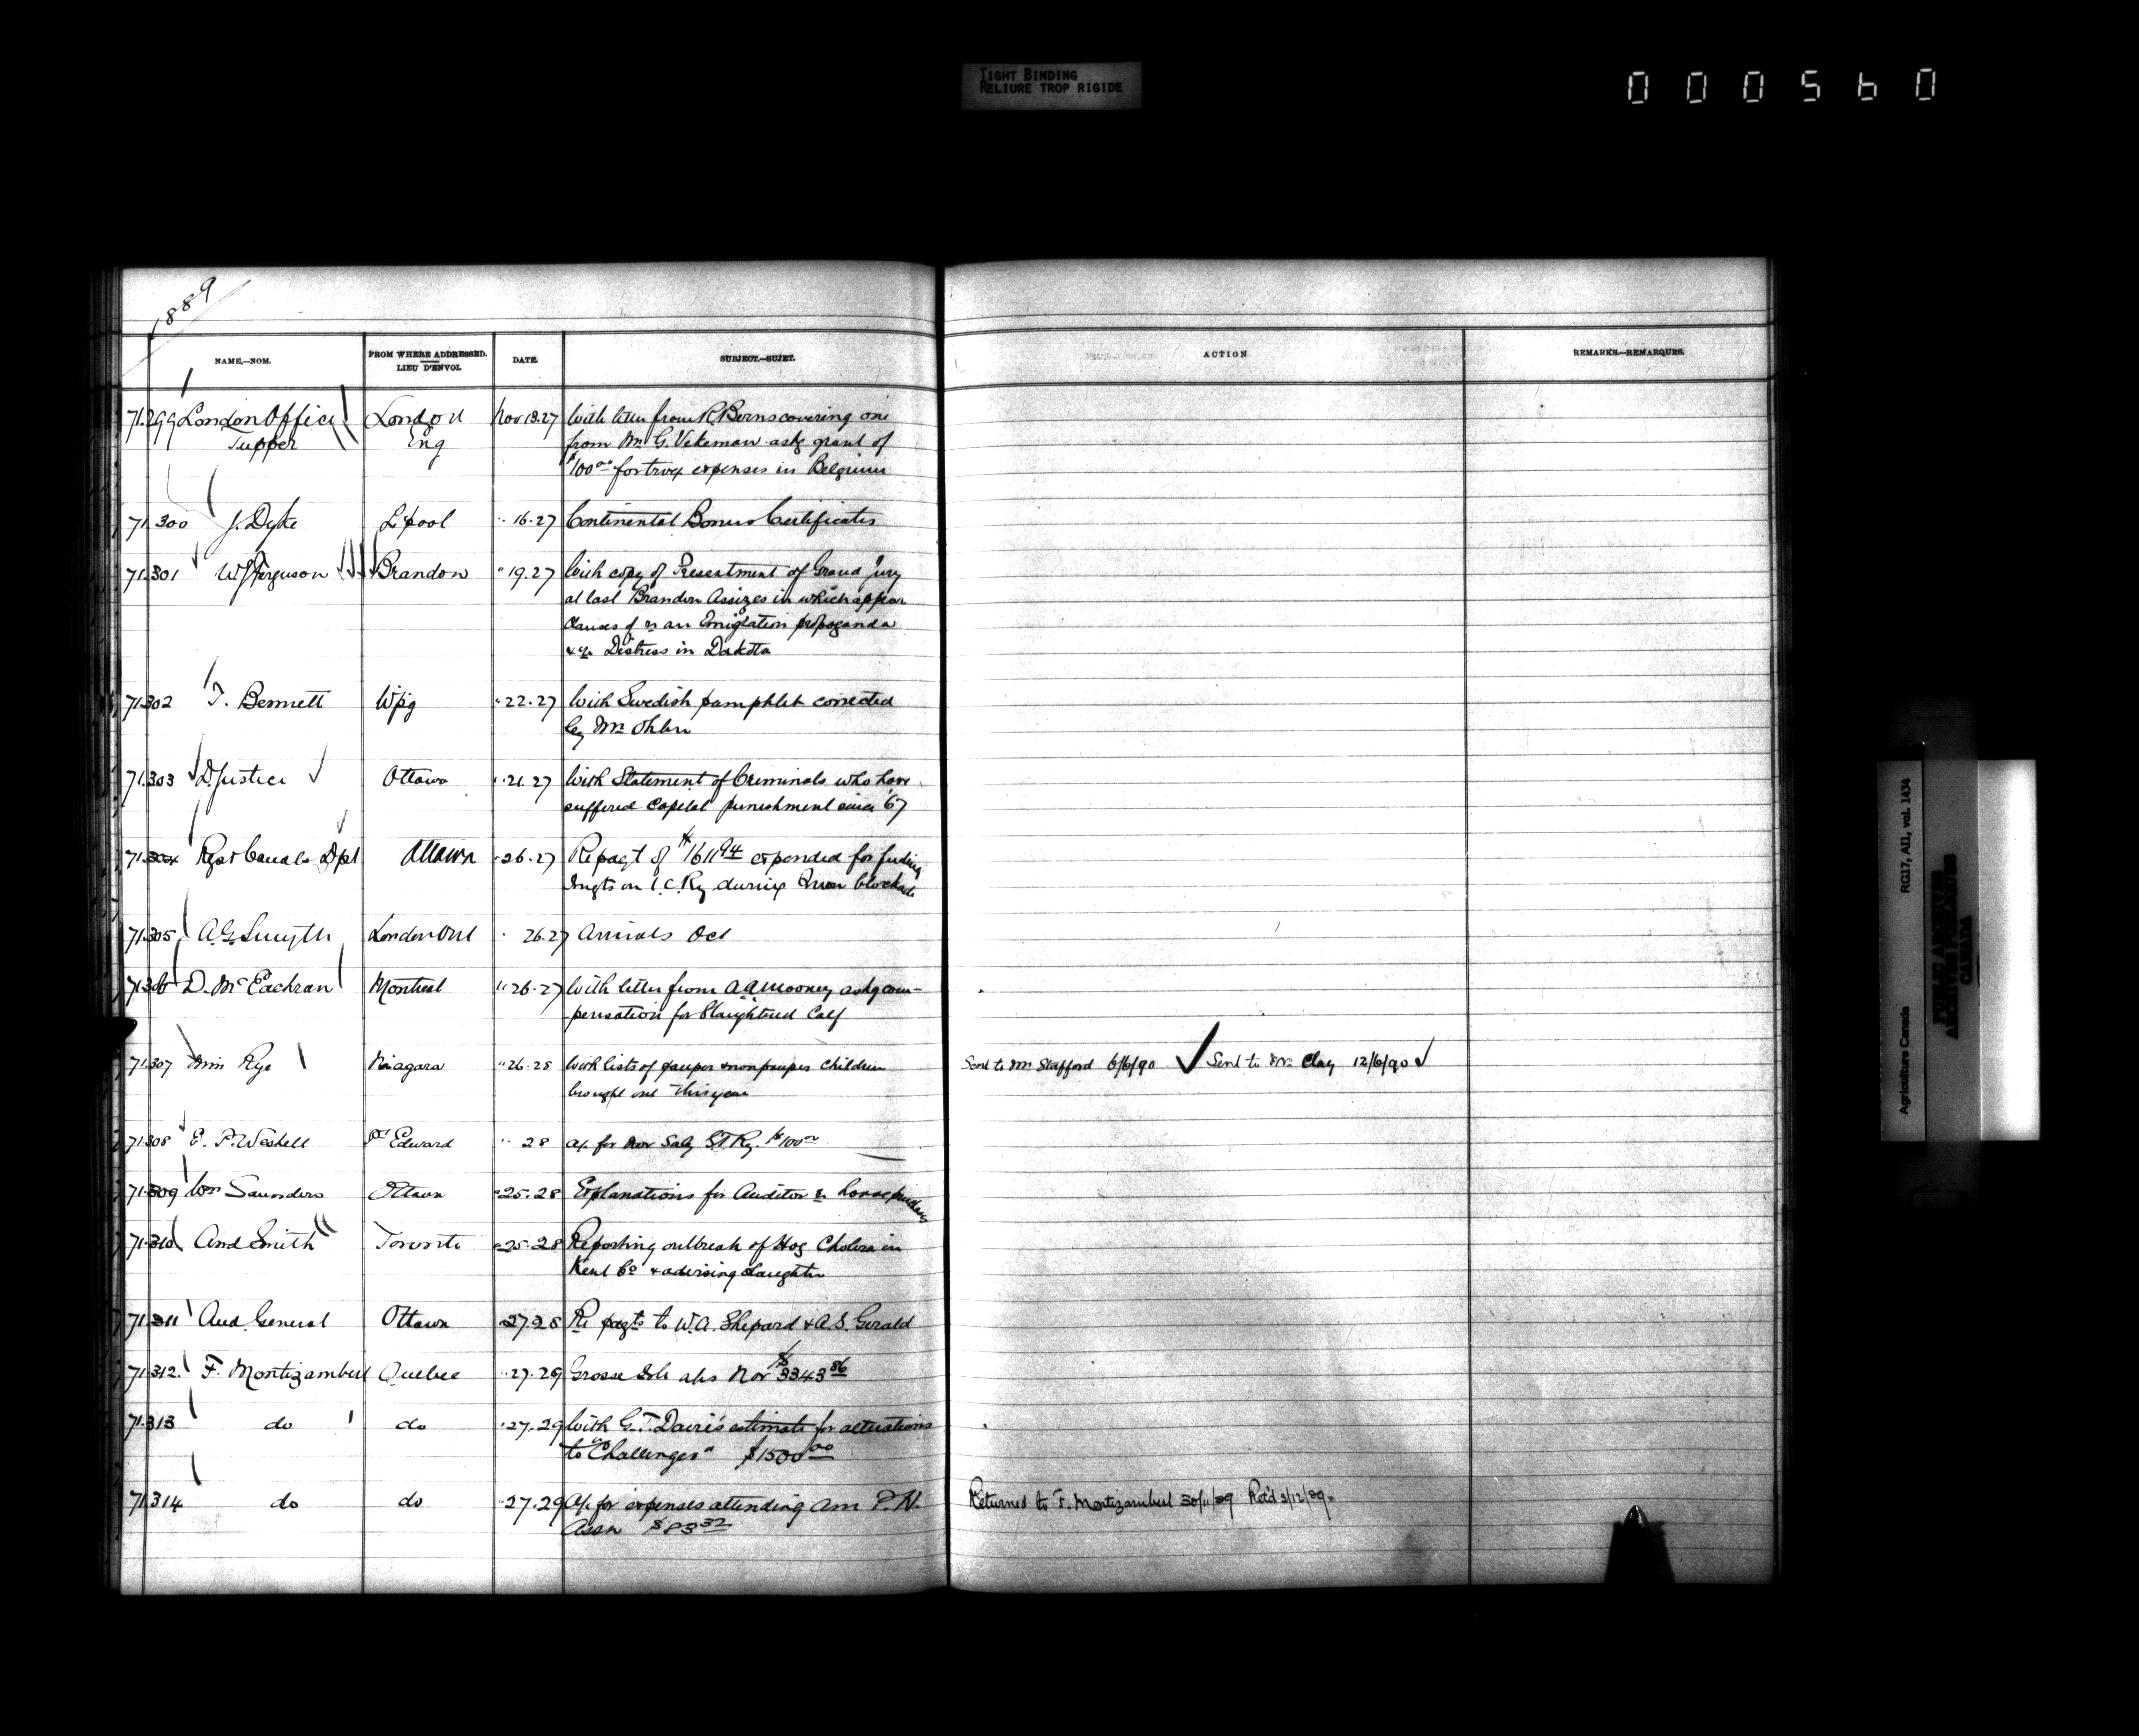 TIGHT BINDING
RELIURE TROP RIGIDE
000560
1889
NAME.—NOM.
FROM WHERE ADDRESSED.
LIEU D'ENVOI.
DATE.
SUBJECT.—SUJET.
ACTION
REMARKS.—REMARQUES.
71.299 London Office London Nov 13.27 With letter from R. Berns covering one
Tupper Eng from Mr G. Vekeman askg grant of
$100 00 for travg expenses in Belgium
71.300 J. Dyke L'pool " 16.27 Continental Bonus Certificates
71.301 W. J. Ferguson Brandon " 19.27 With copy of Presentment of Grand Jury
at last Brandon Assizes in which appear
clauses of re an Emigration propoganda
& re Distress in Dakota
71.302 T. Bennett Wpg " 22.27 With Swedish pamphlet corrected
by Mr Ohlen
71.303 D. Justice Ottawa " 21.27 With Statement of Criminals who have
suffered capital punishment since '67
71.304 Rys & Canals Dpt Ottawa " 26.27 Repayt of $1611 94 expended for feeding
Imgts on I.C.Ry during snow blockade
71.305 A.G. Smyth London Ont " 26.27 Arrivals Oct
71.306 D. McEachran Montreal " 26.27 With letter from A.A. Mooney askg com-
pensation for Slaughtered Calf
71.307 Miss Rye Niagara " 26.28 With lists of pauper & non pauper children Sent to Mr Stafford 6/6/90 Sent to Mr Clay 12/6/90
brought out this year
71.308 E. P. Weshell Pt Edward " 28 a/c for Nov Saly GTRy. $100 00
71.309 Wm Saunders Ottawa " 25.28 Explanations for Auditor re horse purchases
71.310 And Smith Toronto " 25.28 Reporting outbreak of Hog Cholera in
Kent Co & advising slaughter
71.311 Aud. General Ottawa " 27.28 Re payts to W.A. Shepard & A.S. Gerald
71.312. F. Montizambert Quebec " 27.29 Grosse Isle a/cs Nov $3343 86
71.313 do do " 27.29 With G.T. Davie's estimate for alterations
to "Challenger" $1500 00
71.314 do do " 27.29 A/c for expenses attending Am P.H. Returned to F. Montizambert 30/11/89 Retd 3/12/89
Assn $83 32
Agriculture Canada RG17, AII, vol. 1434
PUBLIC ARCHIVES
ARCHIVES PUBLIQUES
CANADA